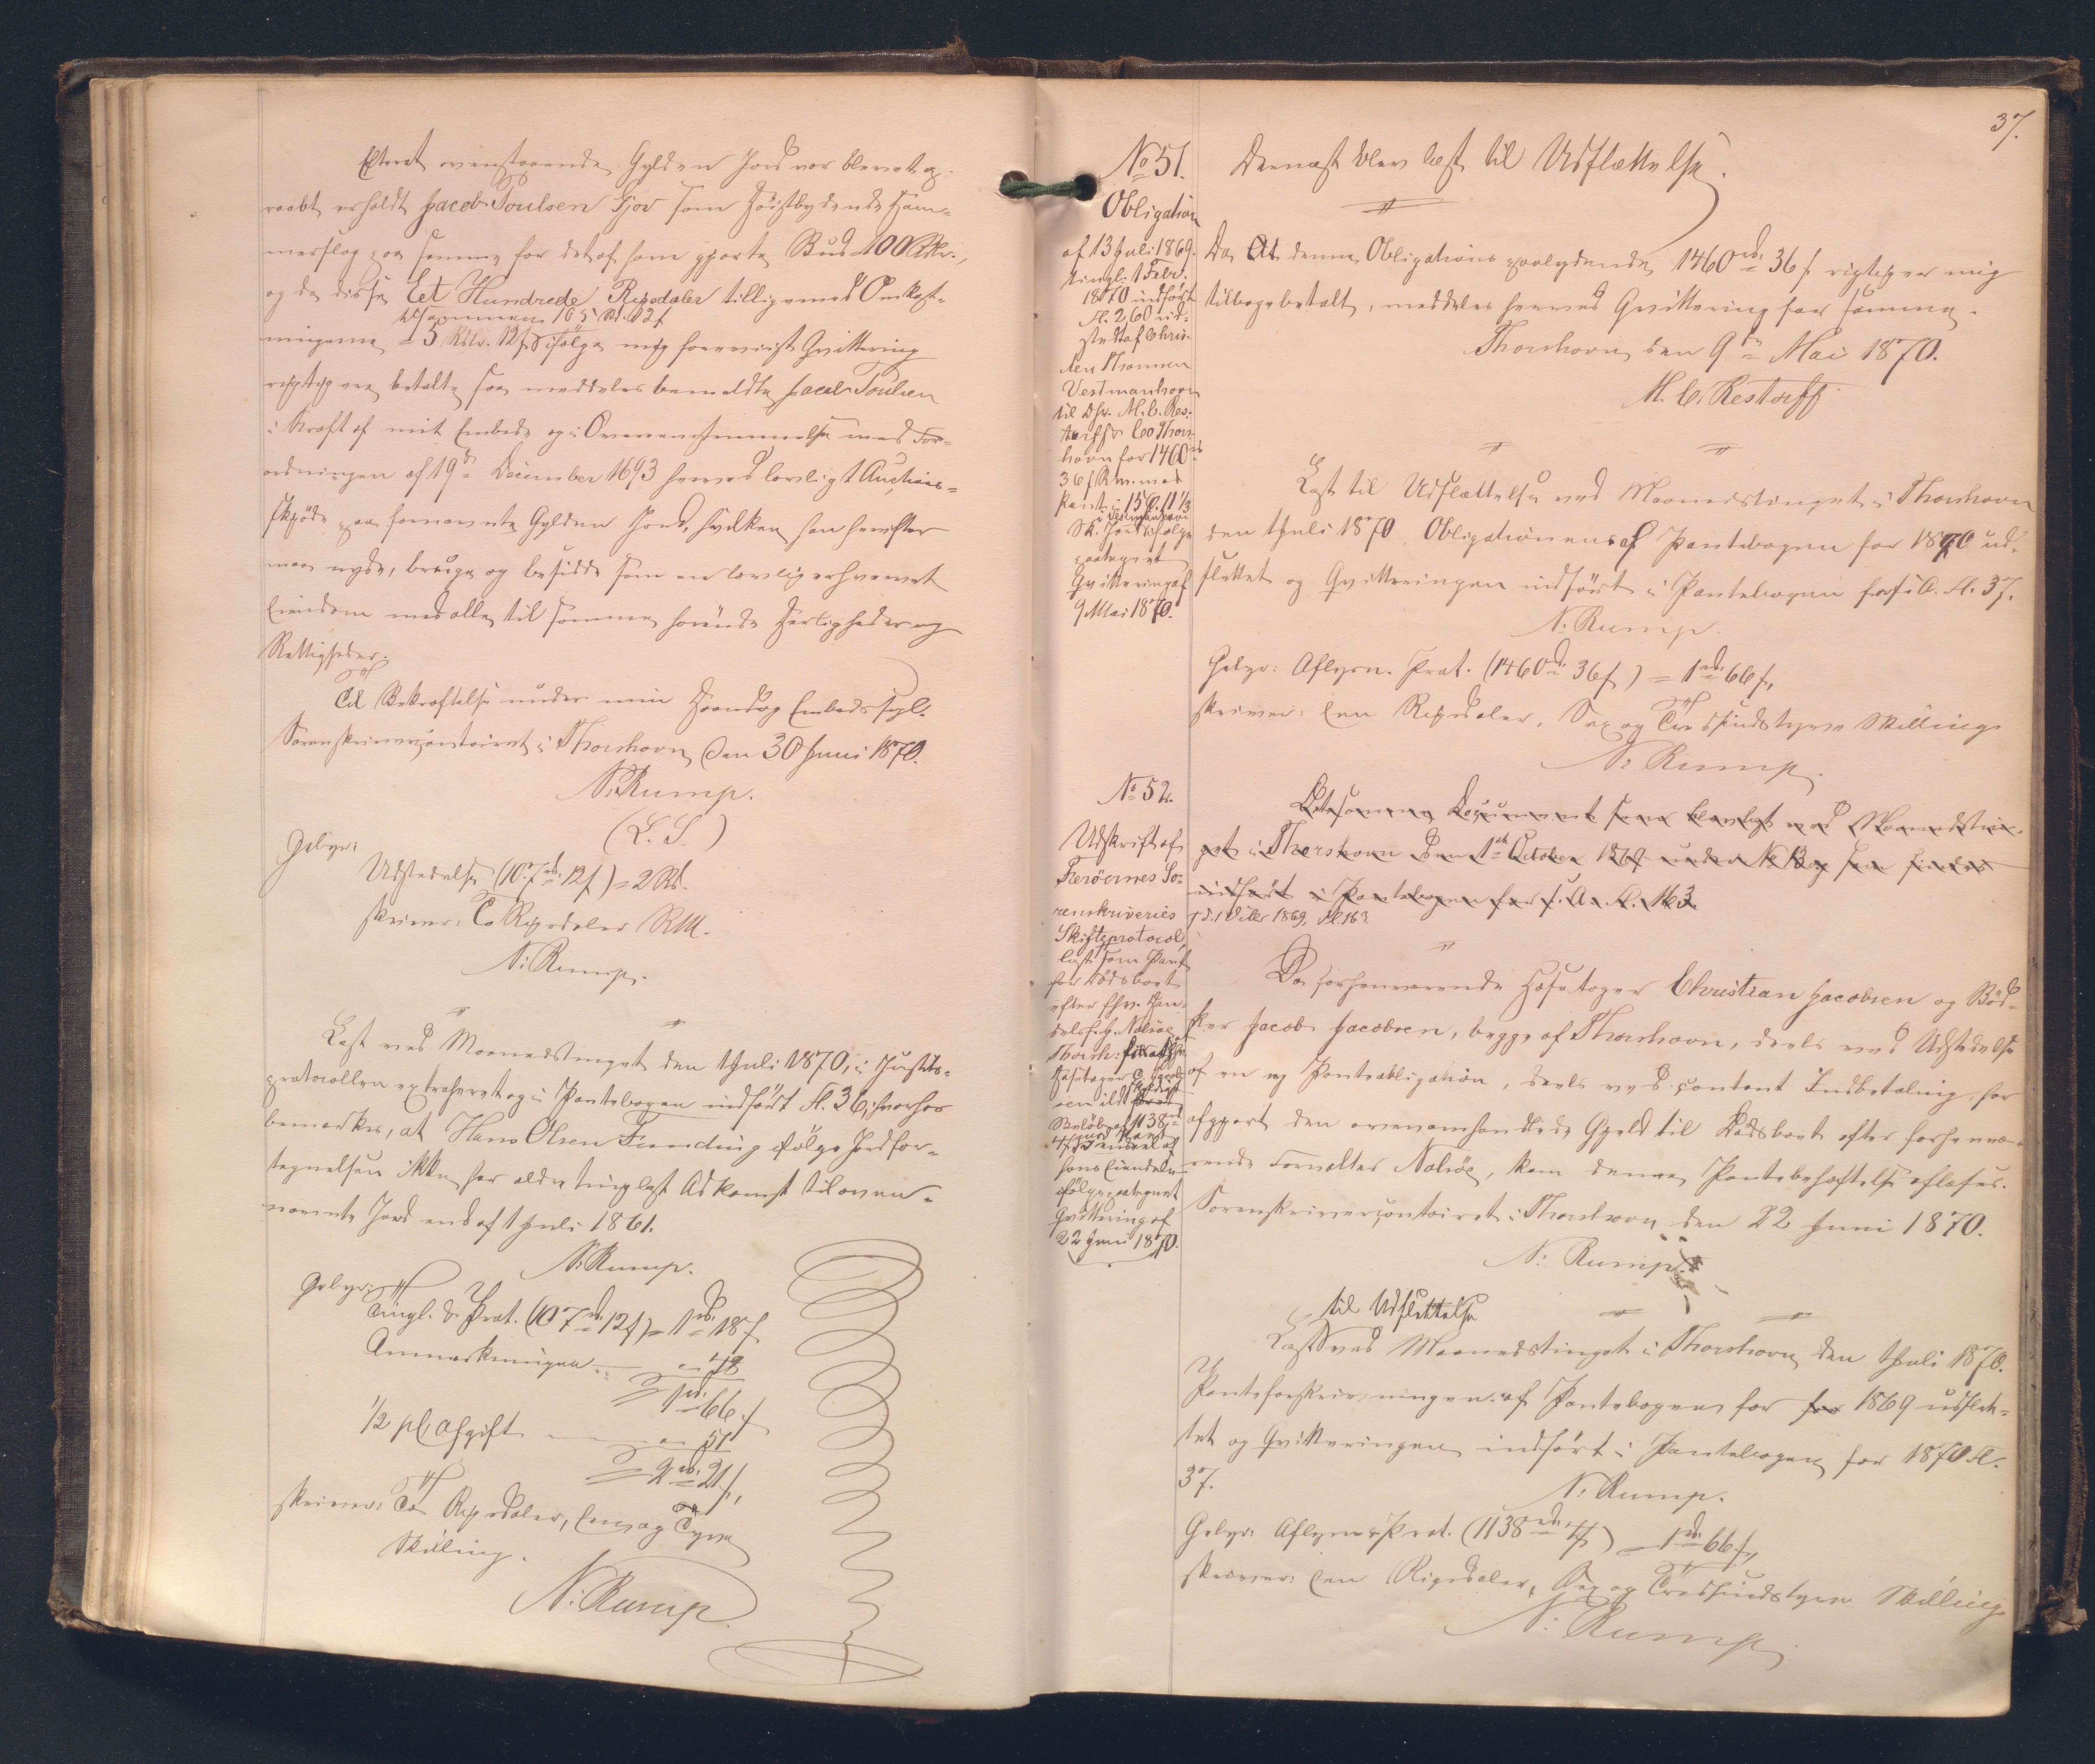 Efterat ovenstaaende Gylden Jord var blevet op-
raabt erholdt Jacob Poulsen Gjov som Høistbydende Ham-
merslag paa samme for det af ham gjorte Bud 100 Rdlr.,
og da disse Eet Hundrede Rigsdaler tilligemed Omkost-
tilsammen 105 Rd. 12 s
ningerne 5 Rdlr. 12 s ifølge mig foreviist Qvittering
rigtig ere betalte saa meddeles bemeldte Jacob Poulsen
i Kraft af mit Embede og i Overensstemmelse med For-
ordningen af 19de December 1693 herved lovligt Auctions-
skjøde paa fornævnte Gylden Jord, hvilken han herefter
maa nyde, bruge og besidde som en lovlig erhvervet
Eiendom med alle til samme hørende Herligheder og
Rettigheder.
Til Bekræftelse under min Haand og Embedssegl.
Sorenskrivercontoiret i Thorshavn den 30 Juni 1870.
N. Rump.
(L. S.)
Gebyr:
Udstedelse (107 rd. 12 s) = 2 Rd.
skriver: To Rigsdaler RM.
N: Rump.
Læst ved Maanedstinget den 1 Juli 1870, i Justits-
protocollen extraheret og i Pantebogen indført fl. 36, hvorhos
bemærkes, at Hans Olsen Funding ifølge Jordfor-
tegnelsen ikke har ældre tinglyst Adkomst til oven-
nævnte Jord end af 1 Juli 1861.
N: Rump.
Gebyr:
Tingl. & Prot. (107 rd. 12 s) = 1 rd. 18 s
Anmærkningen — 48
1 rd. 66 s
1/2 pCt Afgift — 51
2 rd. 21 s,
skriver: To Rigsdaler, Een og Tyve
Skilling.
N: Rump
37.
No 51.
Obligation
af 13 Juli 1869.
tingl: 1 Febr.
1870 indført
fl. 260 ud-
stedt af Chris-
ten Thomsen
Vestmanhavn
til Dhr. M. C. Res-
torffs Co Thors-
havn for 1460 rd
36 s Rm. med
Pant i 15 G. 11 1/3
i Vestmanhavn
Sk. Jord ifølge
paategnet
Qvittering af
9 Mai 1870.
Dernæst blev læst til Udslættelse.
Da At denne Obligations paalydende 1460 rd. 36 s rigtig er mig
tilbagebetalt, meddeles herved Qvittering for samme.
Thorshavn, den 9de Mai 1870.
M. C. Restorff
Læst til Udslættelse ved Maanedstinget i Thorshavn
den 1 Juli 1870. Obligationen af Pantebogen for 1870 ud-
slettet og Qvitteringen indført i Pantebogen for f. A. fl. 37.
N: Rump.
Gebyr: Aflysn. Prot. (1460 rd. 36 s) = 1 rd. 66 s,
skriver: Een Rigsdaler, Sex og Tredsindstyve Skilling
N: Rump.
No 52.
Udskrift af
Færøernes So-
renskriveries
Skifteprotocol,
læst som Pant
for Dødsboet
efter fhv. Han-
delsf. J. Nolsøe
Thorsh:
Husetager C. Jacob-
sen
Beløb af 1138 rd
hans Eiendele
ifølge paategnet
Qvittering af
22 Juni 1870.
Detsamme Document som blev læst ved Maanedstin-
get i Thorshavn den 1ste October 1869 under No 13 og som findes
indført i Pantebogen for f. A. fl. 163.
1869, fl. 163
Da forhenværende Huusetager Christian Jacobsen og Bød-
ker Jacob Jacobsen, begge af Thorshavn, deels ved Udstedelse
af en ny Panteobligation, deels ved contant Indbetaling, har
afgjort den ovenomhandlede Gjæld til Dødsboet efter forhenvæ-
rende Forvalter Nolsøe, kan denne Pantebehæftelse aflæses.
Sorenskrivercontoiret i Thorshavn den 22 Juni 1870.
N: Rump.
til Udslettelse
Læst ved Maanedstinget i Thorshavn den 1 Juli 1870.
Panteforskrivningen af Pantebogen for for 1869 udslet-
tet og Qvitteringen indført i Pantebogen for 1870 fl.
37.
N. Rump.
Gebyr: Aflysn & Prot. (1138 rd. 4 s) = 1 rd. 66 s,
skriver: Een Rigsdaler, Sex og Tredsindstyve Skilling
N: Rump